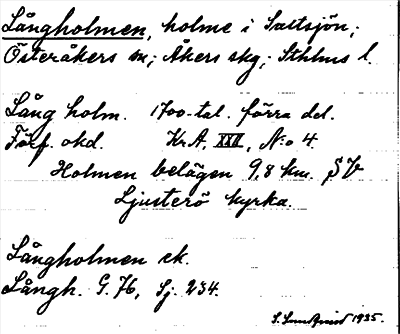 Långholmen, holme i Saltsjön;
Österåkers sn; Åkers skg; Sthlms l.
Lång holm. 1700-tal. förra del.
Förf. okd. Kr.A. XXII, N:o 4.
Holmen belägen 9,8 km. SV
Ljusterö kyrka.
Långholmen ek.
Långh. G. 76, Sj. 234.
S. Lundqvist 1935.